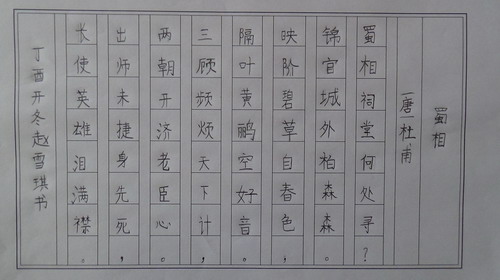 蜀相
唐 杜甫
蜀相祠堂何处寻？
锦官城外柏森森。
映阶碧草自春色，
隔叶黄鹂空好音。
三顾频烦天下计，
两朝开济老臣心。
出师未捷身先死，
长使英雄泪满襟。
丁酉开冬赵雪琪书